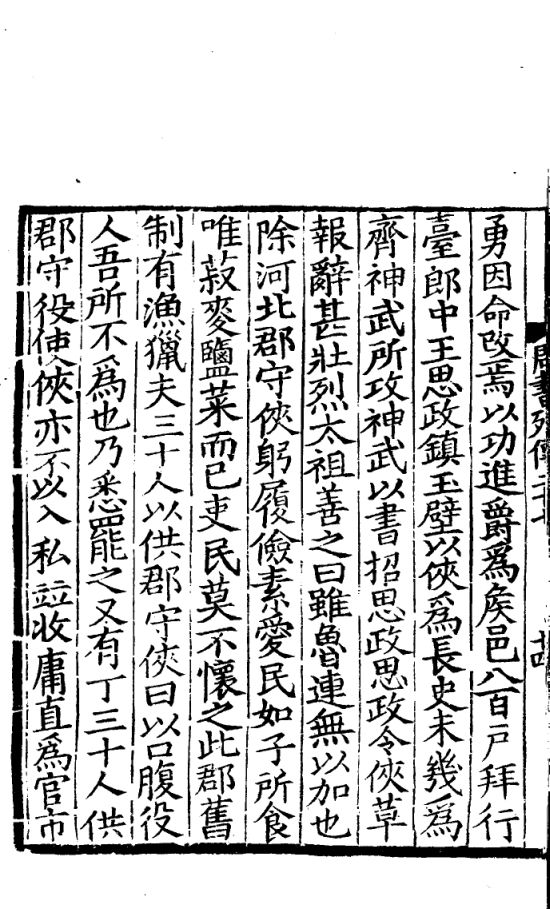 勇因命改焉以功進爵爲侯邑八百戸拜行
臺郎中王思政鎮玉壁以俠爲長史未幾爲
齊神武所攻神武以書招思政思政令俠草
報辭甚壯烈太祖善之曰雖魯連無以加也
除河北郡守俠躬履儉素愛民如子所食
唯菽麥鹽菜而已吏民莫不懷之此郡舊
制有漁獵夫三十人以供郡守俠曰以口腹役
人吾所不爲也乃悉罷之又有丁三十人供
郡守役使俠亦不以入私竝收庸直爲官市